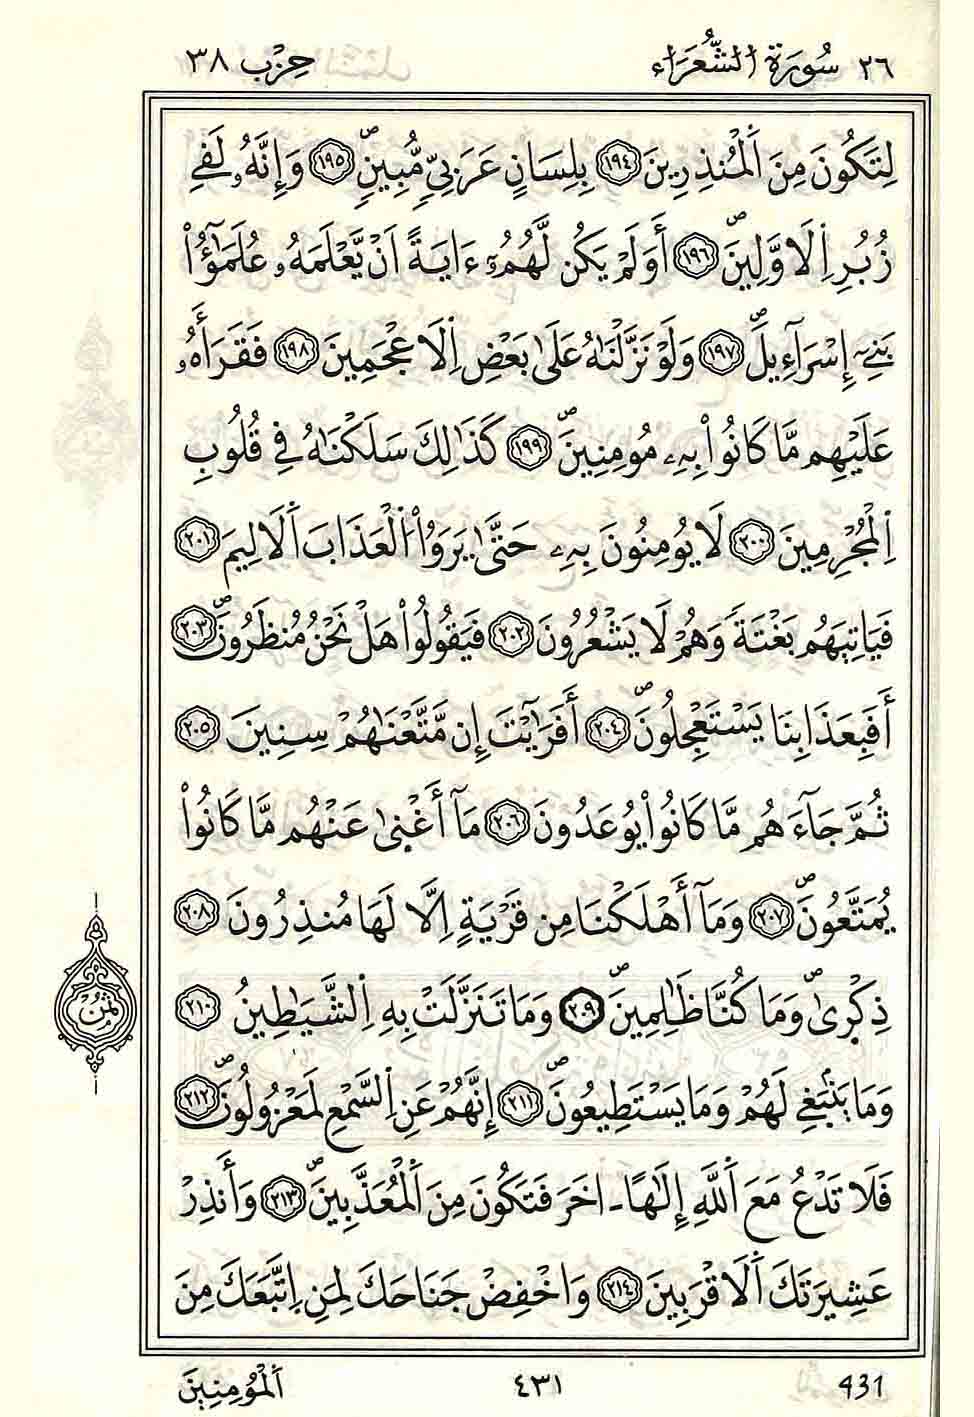 ٢٦ سُورَةُ الشُّعَرَاء حِزْب ٣٨
لِتَكُونَ مِنَ اَ۬لْمُنذِرِينَ ١٩٤ بِلِسَانٍ عَرَبِيّٖ مُّبِينٖۖ ١٩٥ وَإِنَّهُۥ لَفِے
زُبُرِ اِ۬لَاوَّلِينَۖ ١٩٦ أَوَلَمْ يَكُن لَّهُمُۥٓ ءَايَةً اَنْ يَّعْلَمَهُۥ عُلَمَٰٓؤُاْ
بَنِےٓ إِسْرَآءِيلَۖ ١٩٧ وَلَوْ نَزَّلْنَٰهُ عَلَىٰ بَعْضِ اِ۬لَاعْجَمِينَ ١٩٨ فَقَرَأَهُۥ
عَلَيْهِم مَّا كَانُواْ بِهِۦ مُومِنِينَۖ ١٩٩ كَذَٰلِكَ سَلَكْنَٰهُ فِے قُلُوبِ
اِ۬لْمُجْرِمِينَ ٢٠٠ لَا يُومِنُونَ بِهِۦ حَتَّىٰ يَرَوُاْ اُ۬لْعَذَابَ اَ۬لَالِيمَ ٢٠١
فَيَاتِيَهُم بَغْتَةٗ وَهُمْ لَا يَشْعُرُونَ ٢٠٢ فَيَقُولُواْ هَلْ نَحْنُ مُنظَرُونَۖ ٢٠٣
أَفَبِعَذَابِنَا يَسْتَعْجِلُونَۖ ٢٠٤ أَفَرَٰٓيْتَ إِن مَّتَّعْنَٰهُمْ سِنِينَ ٢٠٥
ثُمَّ جَآءَهُم مَّا كَانُواْ يُوعَدُونَ ٢٠٦ مَآ أَغْن۪ىٰ عَنْهُم مَّا كَانُواْ
يُمَتَّعُونَۖ ٢٠٧ وَمَآ أَهْلَكْنَا مِن قَرْيَةٍ اِلَّا لَهَا مُنذِرُونَ ٢٠٨
ذِكْر۪ىٰۖ وَمَا كُنَّا ظَٰلِمِينَۖ ٢٠٩ وَمَا تَنَزَّلَتْ بِهِ اِ۬لشَّيَٰطِينُ ٢١٠
ثُمُن
وَمَا يَنۢبَغِے لَهُمْ وَمَا يَسْتَطِيعُونَۖ ٢١١ إِنَّهُمْ عَنِ اِ۬لسَّمْعِ لَمَعْزُولُونَۖ ٢١٢
فَلَا تَدْعُ مَعَ اَ۬للَّهِ إِلَٰهاً اٰخَرَ فَتَكُونَ مِنَ اَ۬لْمُعَذَّبِينَۖ ٢١٣ وَأَنذِرْ
عَشِيرَتَكَ اَ۬لَاقْرَبِينَ ٢١٤ وَاخْفِضْ جَنَاحَكَ لِمَنِ اِ۪تَّبَعَكَ مِنَ
431 ٤٣١ اَ۬لْمُومِنِينَ